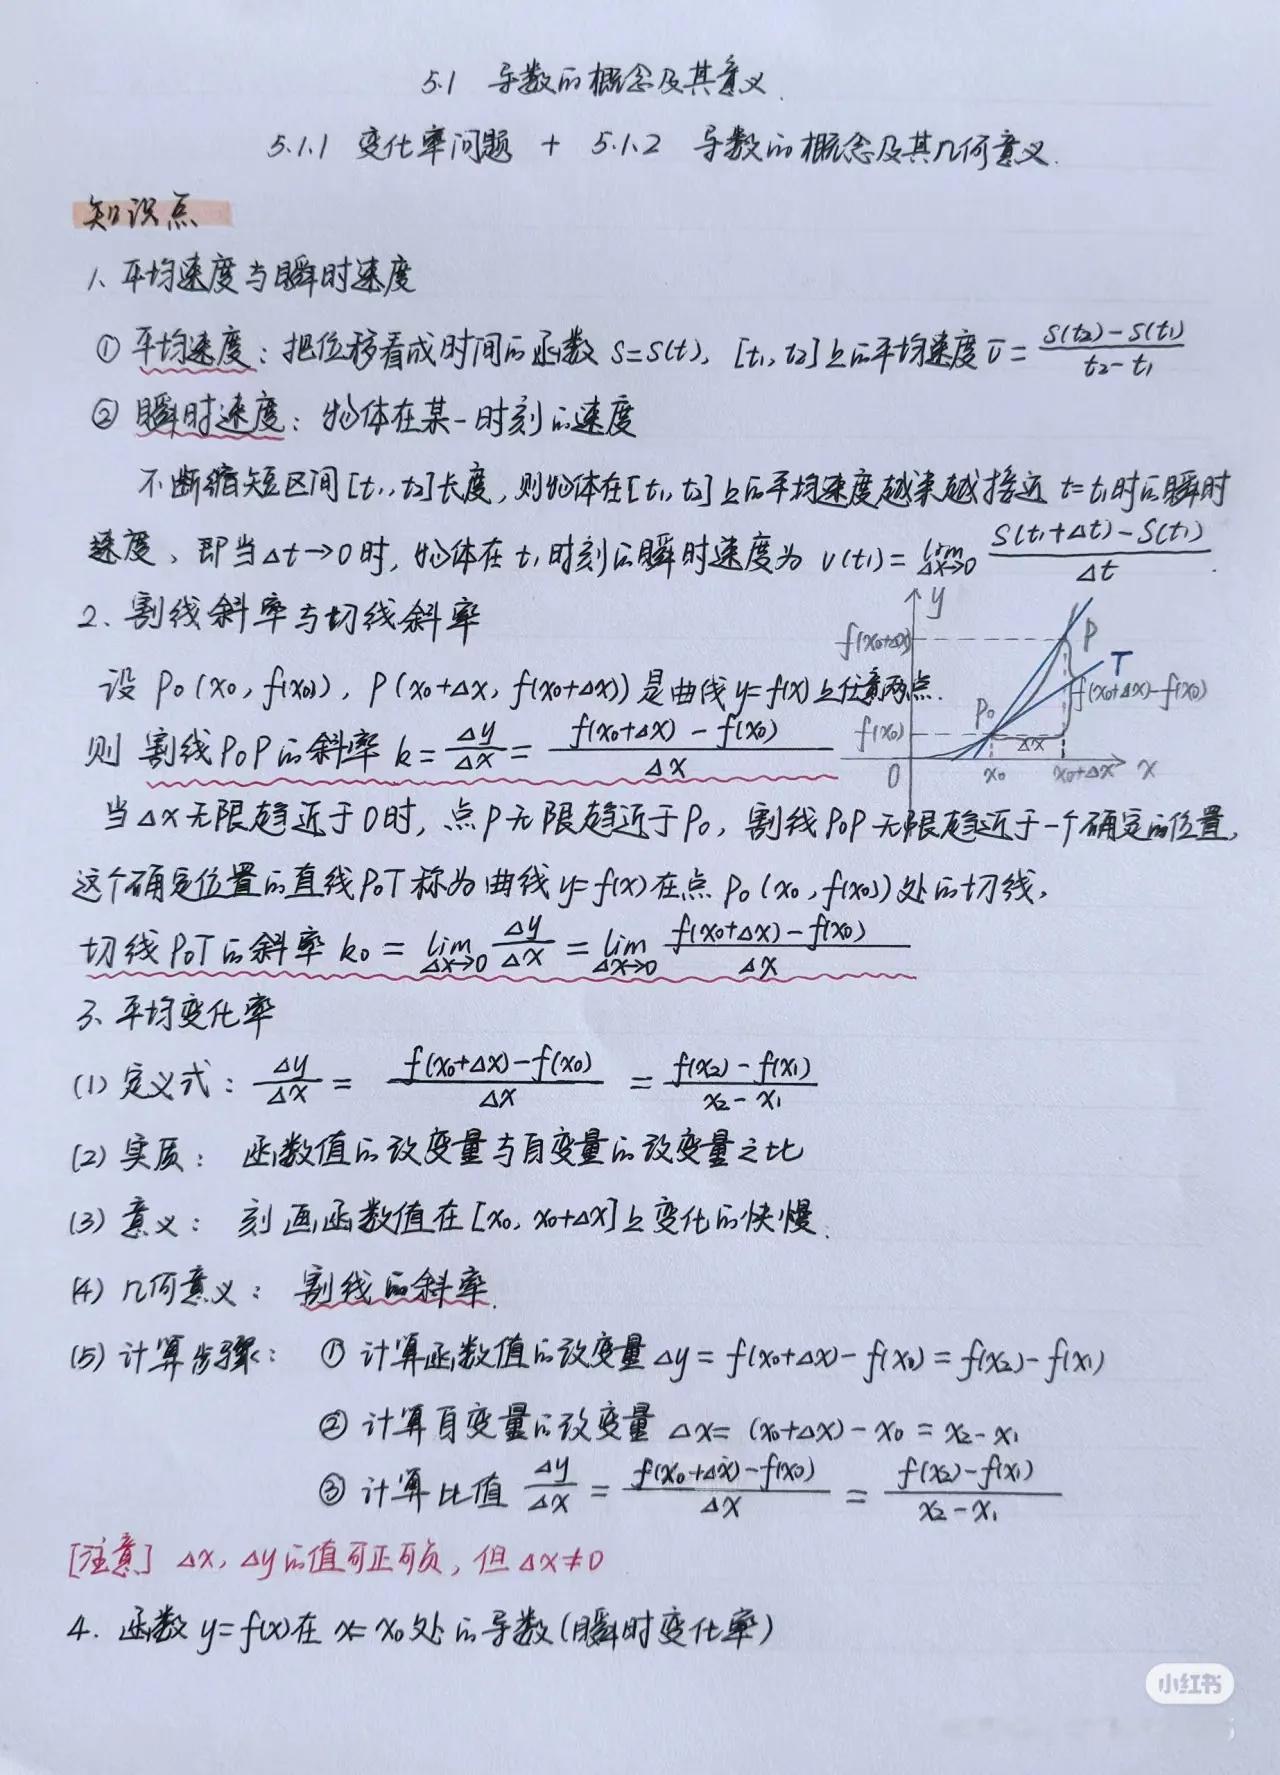 5.1 导数的概念及其意义.
5.1.1 变化率问题 + 5.1.2 导数的概念及其几何意义.
知识点
1、平均速度与瞬时速度
① 平均速度：把位移看成时间的函数 S=S(t)，[t₁, t₂]上的平均速度 v̄ = (S(t₂)-S(t₁))/(t₂-t₁)
② 瞬时速度：物体在某一时刻的速度
不断缩短区间[t₁, t₂]长度，则物体在[t₁, t₂]上的平均速度越来越接近 t=t₁时的瞬时
速度、即当Δt→0时，物体在t₁时刻的瞬时速度为 v(t₁) = lim Δx→0 (S(t₁+Δt)-S(t₁))/Δt.
2、割线斜率与切线斜率
设 P₀(x₀, f(x₀))，P(x₀+Δx, f(x₀+Δx))是曲线y=f(x)上任意两点.
则 割线P₀P的斜率 k = Δy/Δx = (f(x₀+Δx)-f(x₀))/Δx
y
f(x₀+Δx)
P
T
f(x₀+Δx)-f(x₀)
P₀
f(x₀)
Δx
0 x₀ x₀+Δx x
当Δx无限趋近于0时，点P无限趋近于P₀，割线P₀P无限趋近于一个确定的位置，
这个确定位置的直线P₀T称为曲线y=f(x)在点P₀(x₀, f(x₀))处的切线，
切线P₀T的斜率 k₀ = lim Δx→0 Δy/Δx = lim Δx→0 (f(x₀+Δx)-f(x₀))/Δx
3、平均变化率
(1) 定义式：Δy/Δx = (f(x₀+Δx)-f(x₀))/Δx = (f(x₂)-f(x₁))/(x₂-x₁)
(2) 实质：函数值的改变量与自变量的改变量之比
(3) 意义：刻画函数值在[x₀, x₀+Δx]上变化的快慢.
(4) 几何意义：割线的斜率.
(5) 计算步骤：① 计算函数值的改变量Δy = f(x₀+Δx)-f(x₀) = f(x₂)-f(x₁)
② 计算自变量的改变量 Δx = (x₀+Δx)-x₀ = x₂-x₁
③ 计算比值 Δy/Δx = (f(x₀+Δx)-f(x₀))/Δx = (f(x₂)-f(x₁))/(x₂-x₁)
[注意] Δx，Δy的值可正可负，但Δx≠0
4. 函数y=f(x)在x=x₀处的导数(瞬时变化率)
小红书